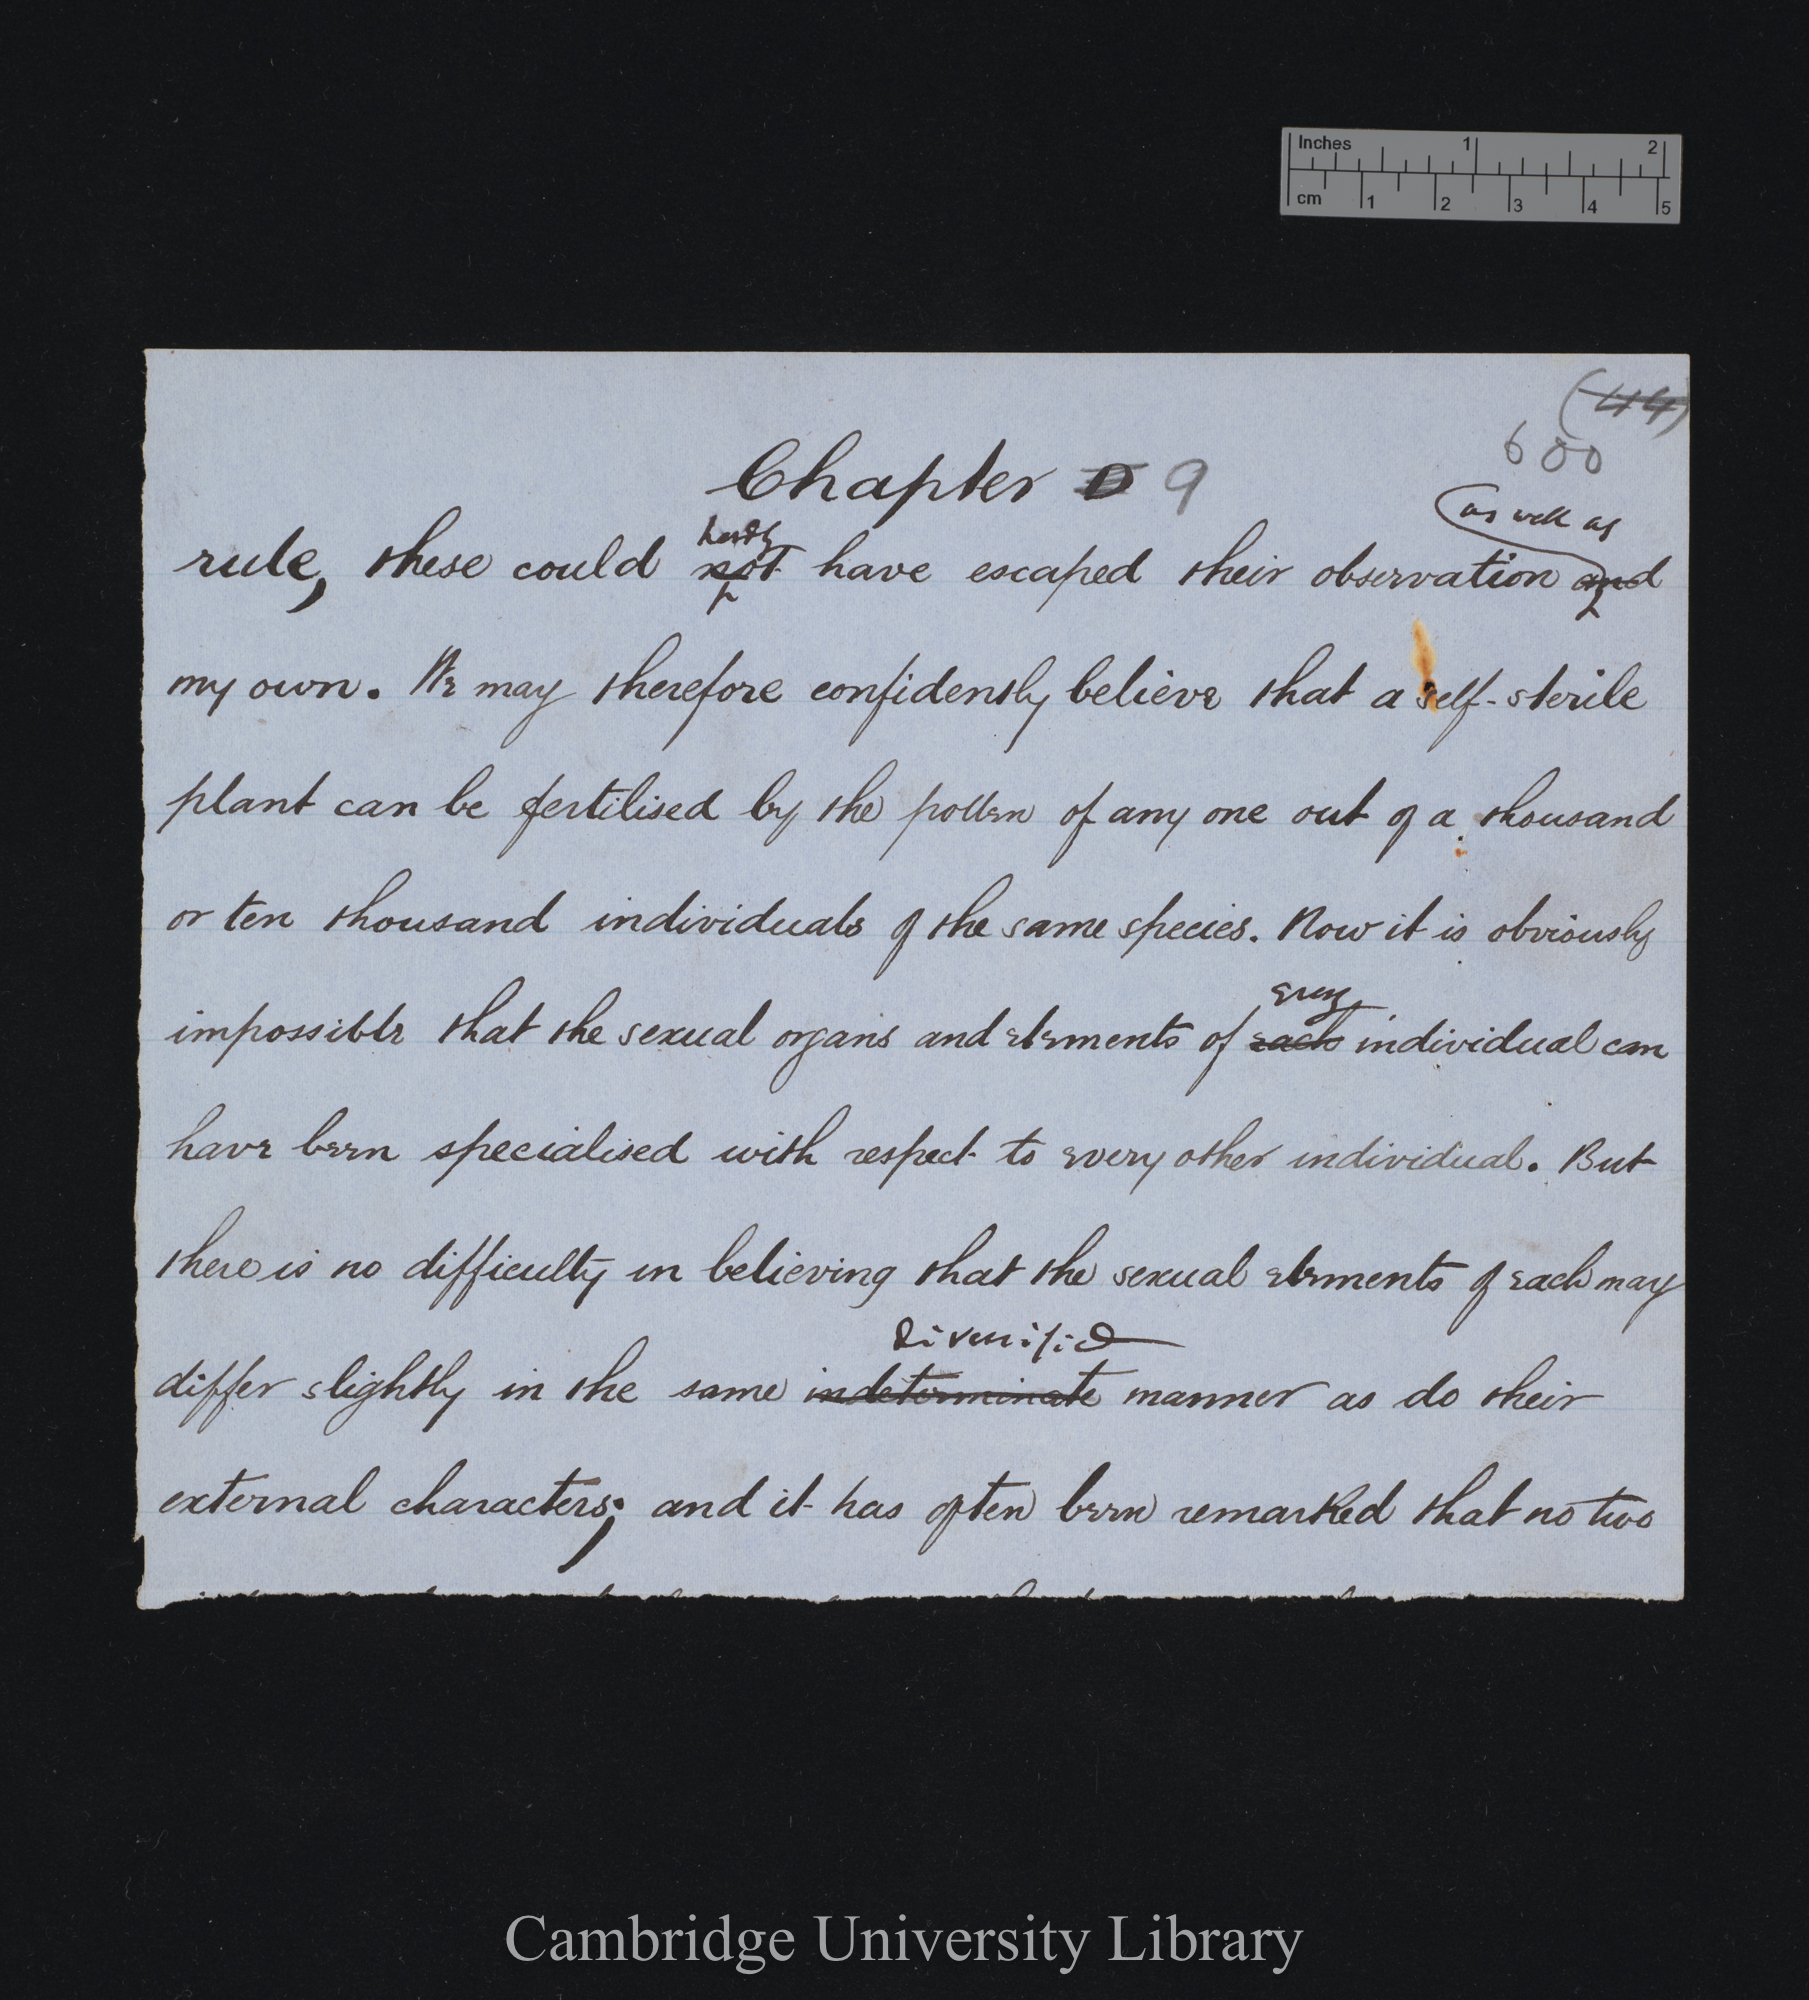 Inches 1 2
cm 1 2 3 4 5
(44)
600
Chapter D 9
hardly as well as
rule, these could not have escaped their observation and
my own. We may therefore confidently believe that a self-sterile
plant can be fertilised by the pollen of any one out of a thousand
or ten thousand individuals of the same species. Now it is obviously
every
impossible that the sexual organs and elements of each individual can
have been specialised with respect to every other individual. But
there is no difficulty in believing that the sexual elements of each may
diversified
differ slightly in the same indeterminate manner as do their
external characters; and it has often been remarked that no two
Cambridge University Library